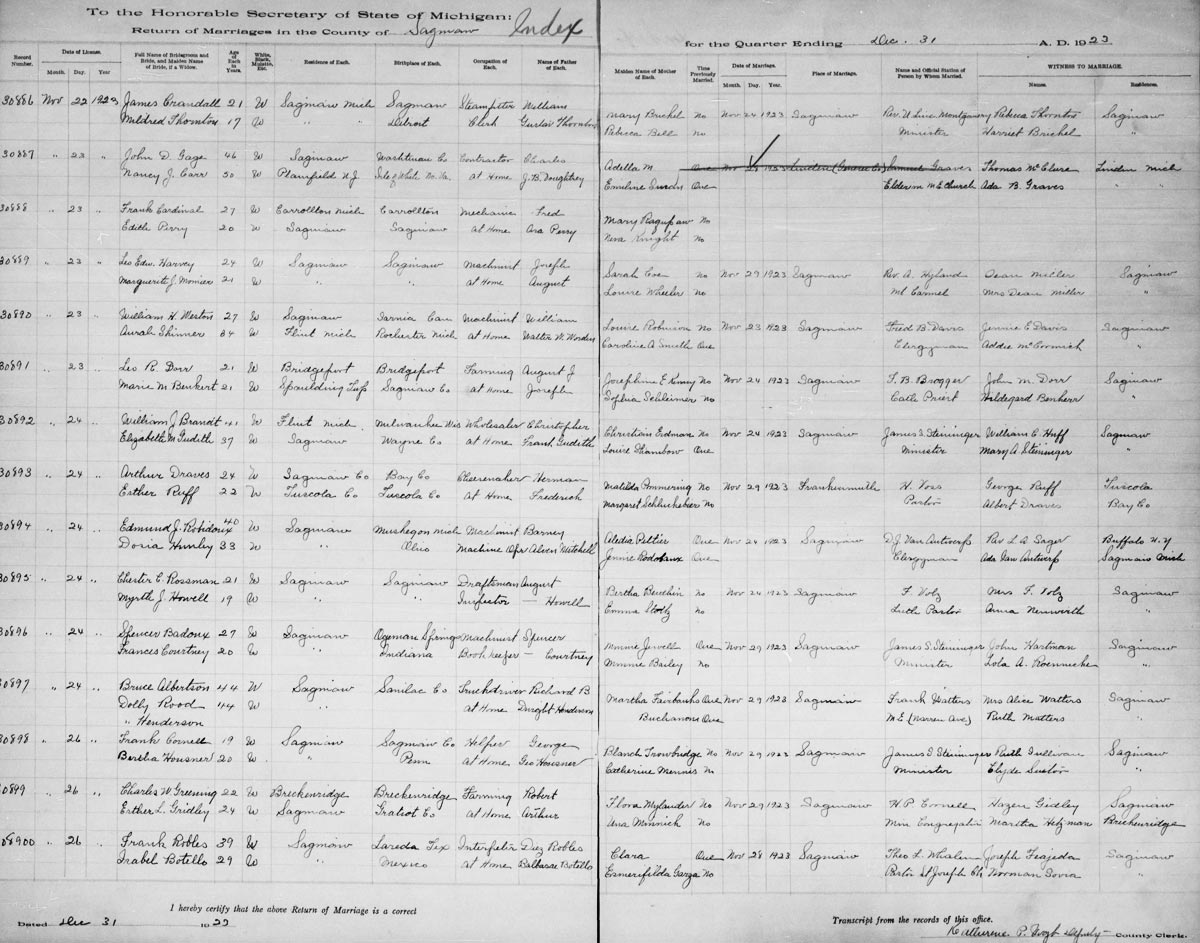 To the Honorable Secretary of State of Michigan:
Return of Marriages in the County of Saginaw Index
for the Quarter Ending Dec. 31 A. D. 1923
Record Number. Date of License. Month. Day. Year Full Name of Bridegroom and Bride, and Maiden Name of Bride, if a Widow. Age of Each in Years. White, Black, Mulatto, Etc. Residence of Each. Birthplace of Each. Occupation of Each. Name of Father of Each.
Maiden Name of Mother of Each. Time Previously Married. Date of Marriage. Month. Day. Year Place of Marriage. Name and Official Station of Person by Whom Married. WITNESS TO MARRIAGE. Names. Residences.
30886 Nov 22 1923 James Crandall 21 W Saginaw Mich Saginaw William
Mildred Thornton 17 W " " Detroit Clerk Gustav Thornton
Mary Brickel No Nov 24 1923 Saginaw Montgomery Rebecca Thornton Saginaw
Rebecca Bell No Minister Harriet Brickel "
30887 " 23 " John D. Gage 46 W Saginaw Washtenaw Co Contractor Charles
Nancy J. Carr 50 W Plainfield N.J. At Home J.B. Doughtrey
Adella M. One Nov 1923 Linden (Genesee Co) Samuel Graves Thomas McClure Linden Mich
Emiline One Elder in M E Church Ada B. Graves " "
30888 " 23 " Frank Cardinal 27 W Carrollton Mich Carrollton Mechanic Fred
Edith Perry 20 W Saginaw Saginaw At Home Ora Perry
Mary No
Neva Knight No
30889 " 23 " Leo Edw. Harvey 24 W Saginaw Saginaw Machinist Joseph
Marguerite J. Momier 21 W " " At Home August
Sarah Coe No Nov 29 1923 Saginaw Rev. A. Hyland Dean Miller Saginaw
Louise Wheeler No Mt Carmel Mrs Dean Miller "
30890 " 23 " William H. Weston 27 W Saginaw Sarnia Can Machinist William
Aurah Skinner 34 W Flint Mich Rochester Mich At Home Walter W. Worden
Louise Robinson No Nov 23 1923 Saginaw Fred B. Davis Jennie E Davis Saginaw
Caroline A Smith One Clergyman Addie McCormick "
30891 " 23 " Leo R. Dorr 21 W Bridgeport Bridgeport Farming August J
Marie M Benkert 21 W Spaulding Twp Saginaw Co At Home Joseph
Josephine E Kinney No Nov 24 1923 Saginaw F. B. Brogger John M. Dorr Saginaw
Sophia Schleimer No Cath Priest Hildegard "
30892 " 24 " William J Brandt 41 W Flint Mich. Milwaukee Wis Wholesaler Christopher
Elizabeth M Gudith 37 W Saginaw Wayne Co At Home Frank Gudith
Christian Erdman No Nov 24 1923 Saginaw James S Steininger William C Huff Saginaw
Louise Thambow One Minister Mary A. Steininger "
30893 " 24 " Arthur Draves 24 W Saginaw Co Bay Co Cheesemaker Herman
Esther Ruff 22 W Tuscola Co Tuscola Co At Home Frederick
Matilda Ammering No Nov 29 1923 Frankenmuth H. Voss George Ruff Tuscola
Margaret Schluckebier No Pastor Albert Draves Bay Co
30894 " 24 " Edmund J. Robidoux 40 W Saginaw Muskegon Mich Machinist Barney
Doria Hunley 33 W " Ohio Machine Opr Alven Mitchell
Aledia Peltier One Nov 24 1923 Saginaw D.J. Van Antwerp Rev L A Sager Buffalo N.Y
Jennie One Clergyman Ada Van Antwerp Saginaw Mich
30895 " 24 " Chester C. Rossman 21 W Saginaw Saginaw Draftsman August
Myrtle J. Howell 19 W " " Inspector — Howell
Bertha No Nov 24 1923 Saginaw F. Volz Mrs F. Volz Saginaw
Emma Stoltz No Luth Pastor Anna Neuwirth "
30896 " 24 " Spencer Badoux 27 W Saginaw Machinist Spencer
Frances Courtney 20 W " Indiana Bookkeeper — Courtney
Minnie Jewell One Nov 29 1923 Saginaw James S. Steininger John Hartman Saginaw
Minnie Bailey No Minister Lola A. Roennicke "
30897 " 24 " Bruce Albertson 44 W Saginaw Sanilac Co Truckdriver Richard B
Dolly Rood 44 W " At Home Dwight Henderson
" Henderson
Martha Fairbanks One Nov 29 1923 Saginaw Frank Watters Mrs Alice Watters Saginaw
Buchanons One M E (Warren Ave) Ruth Watters "
30898 " 26 " Frank Cornell 19 W Saginaw Saginaw Co Helper George
Bertha Housner 20 W " Penn At Home Geo Housner
Blanch Trowbridge No Nov 29 1923 Saginaw James S Steininger Ruth Sullivan Saginaw
Catherine Mennis No Minister Clyde "
30899 " 26 " Charles W Greening 22 W Breckenridge Breckenridge Farming Robert
Esther L. Gridley 24 W Saginaw Gratiot Co At Home Arthur
Flora Mylander No Nov 29 1923 Saginaw H. P. Cornell Hazen Gidley Saginaw
Ana Minnick No Min Congregation Martha Hetzman Breckenridge
08900 " 26 " Frank Robles 39 W Saginaw Laredo Tex Diez Robles
Isabel Botello 29 W " Mexico At Home Balbasar Botello
Clara One Nov 28 1923 Saginaw Theo L. Whalen Joseph Saginaw
Esmerifilda Garza No Pastor St Joseph Ch Norman Sovia "
I hereby certify that the above Return of Marriage is a correct
Transcript from the records of this office.
Dated Dec 31 1923
Katherine P. Vogt Deputy County Clerk.